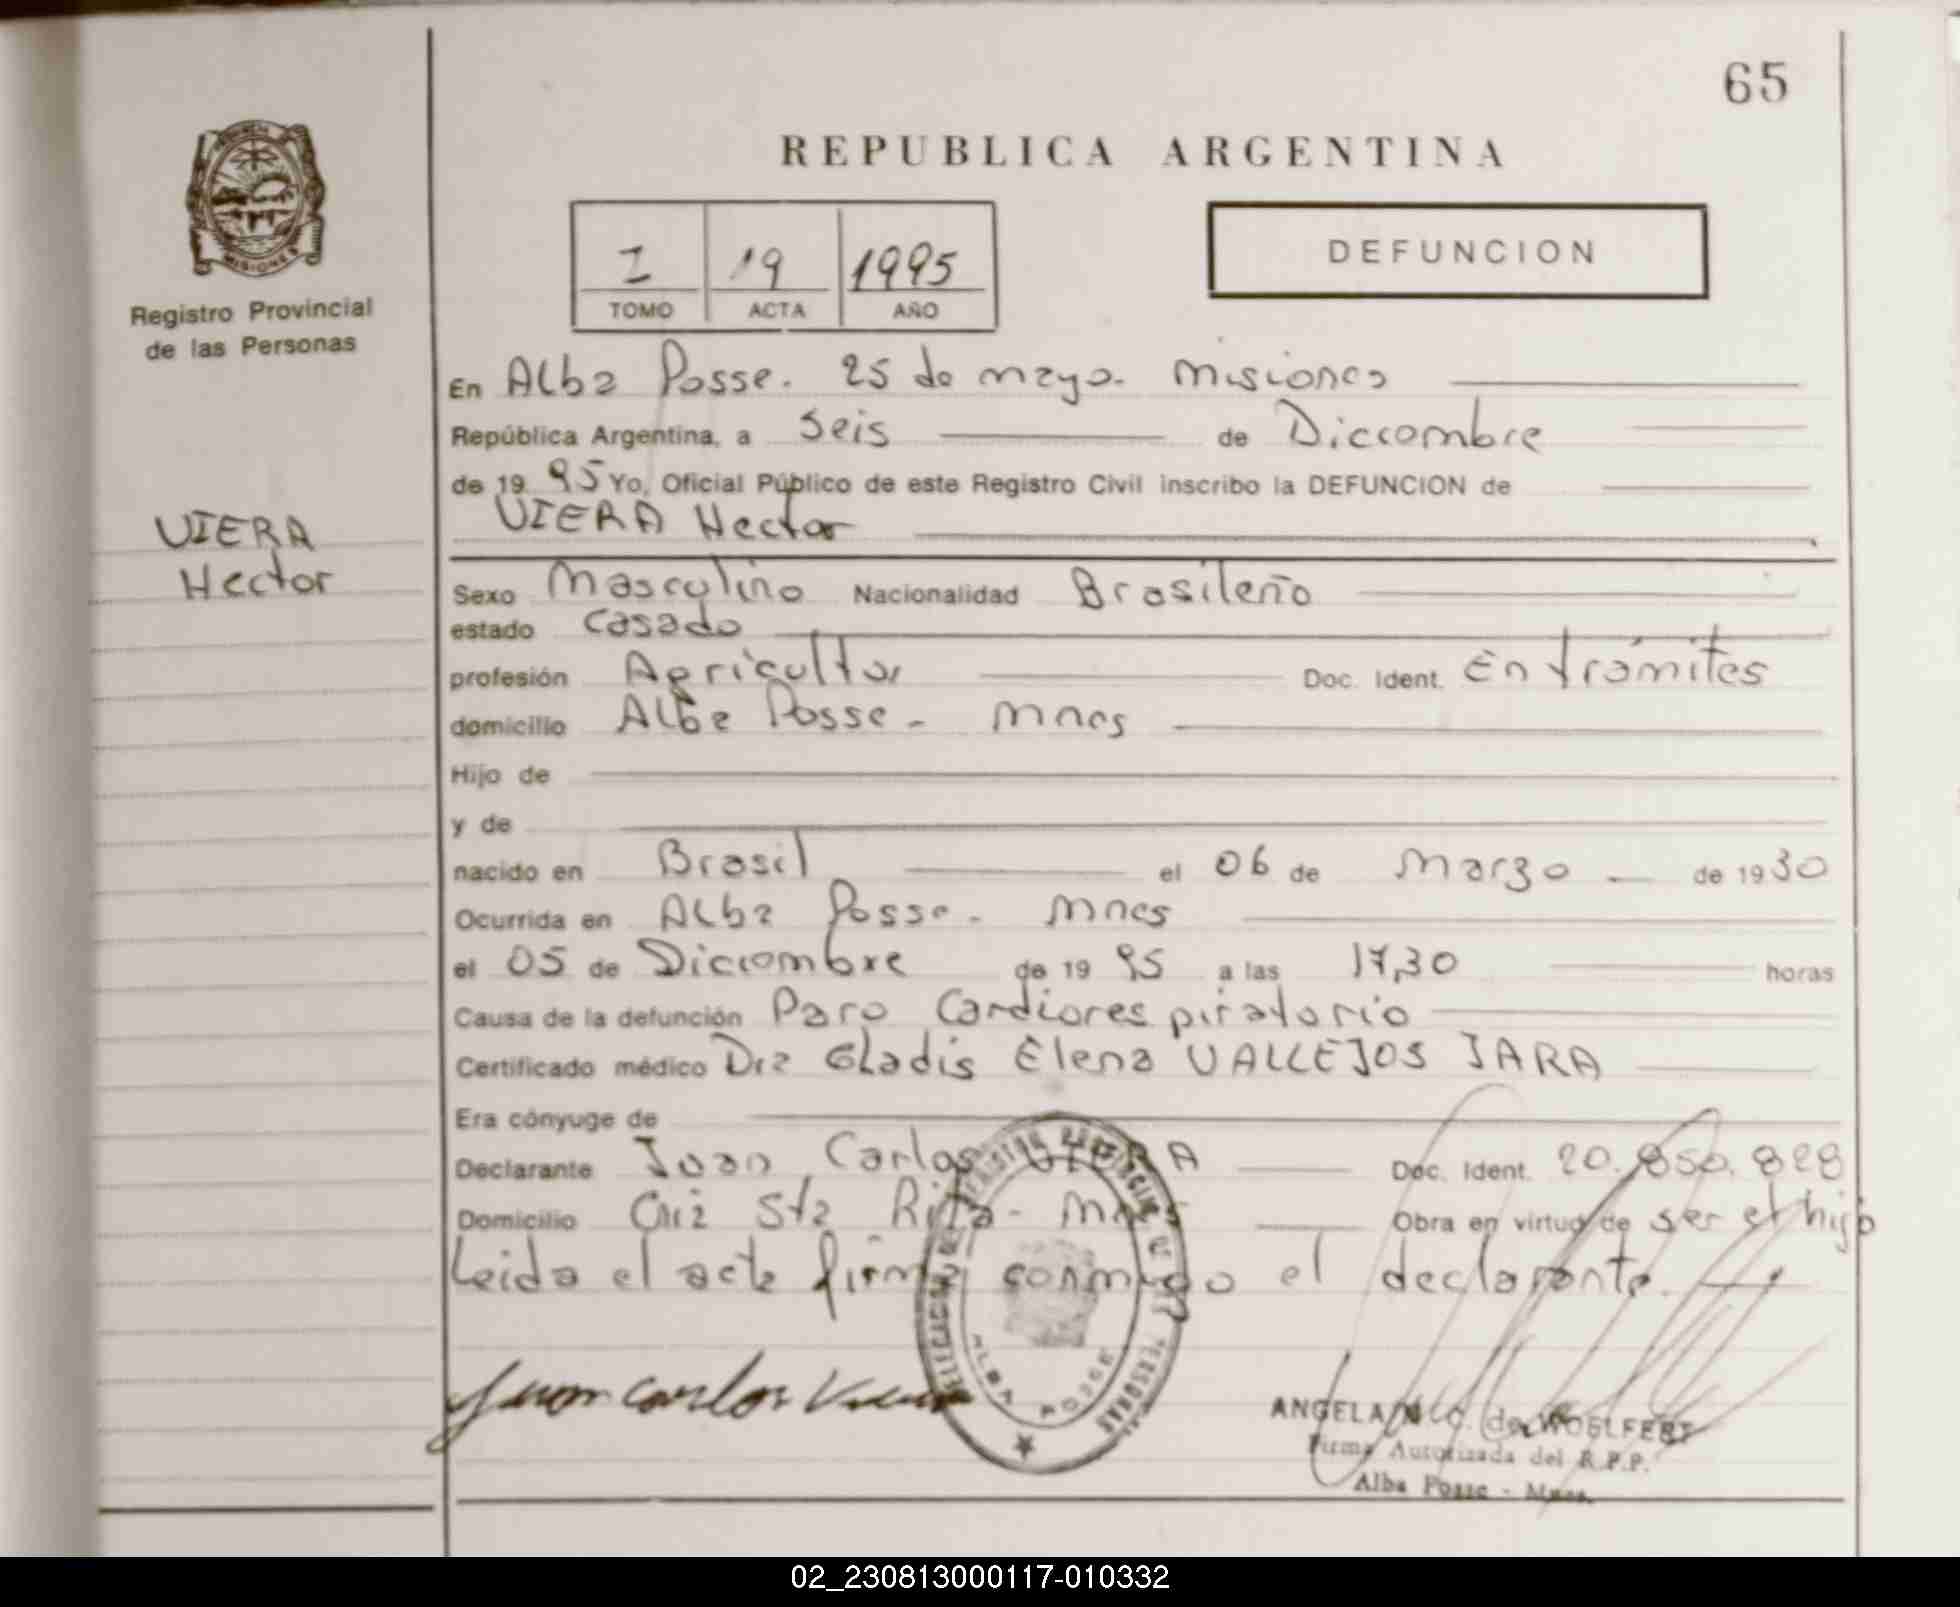 65
REPUBLICA ARGENTINA
I 19 1995
TOMO ACTA AÑO
DEFUNCION
MISIONES
Registro Provincial
de las Personas
VIERA
Hector
En Alba Posse. 25 de mayo. Misiones
República Argentina, a Seis de Diciembre
de 19 95 Yo, Oficial Público de este Registro Civil inscribo la DEFUNCION de
VIERA Hector
Sexo Masculino Nacionalidad Brasileño
estado Casado
profesión Agricultor Doc. Ident. En trámites
domicilio Alba Posse - Mnes
Hijo de
y de
nacido en Brasil el 06 de Marzo de 19 30
Ocurrida en Alba Posse - Mnes
el 05 de Diciembre de 19 95 a las 17,30 horas
Causa de la defunción Paro Cardiorespiratorio
Certificado médico Dra Gladis Elena VALLEJOS JARA
Era cónyuge de
Declarante Juan Carlos VIERA Doc. Ident. 20.850.828
Domicilio Cnia Sta Rita - Mnes Obra en virtud de ser el hijo
Leida el acta firma conmigo el declarante.
Juan Carlos Viera
ALBA POSSE
ANGELA de WOELFERT
Firma Autorizada del R.P.P.
Alba Posse - Mnes.
02_230813000117-010332